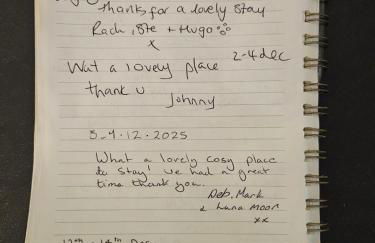 thanks for a lovely stay
Rach, Ste + Hugo
x
2-4 dec
Wat a lovely place
thank u
Johnny
5-9.12.2025
What a lovely cosy place
to stay! we had a great
time thank you.
Deb, Mark
& Luna Moon
xx
12th - 14th Dec